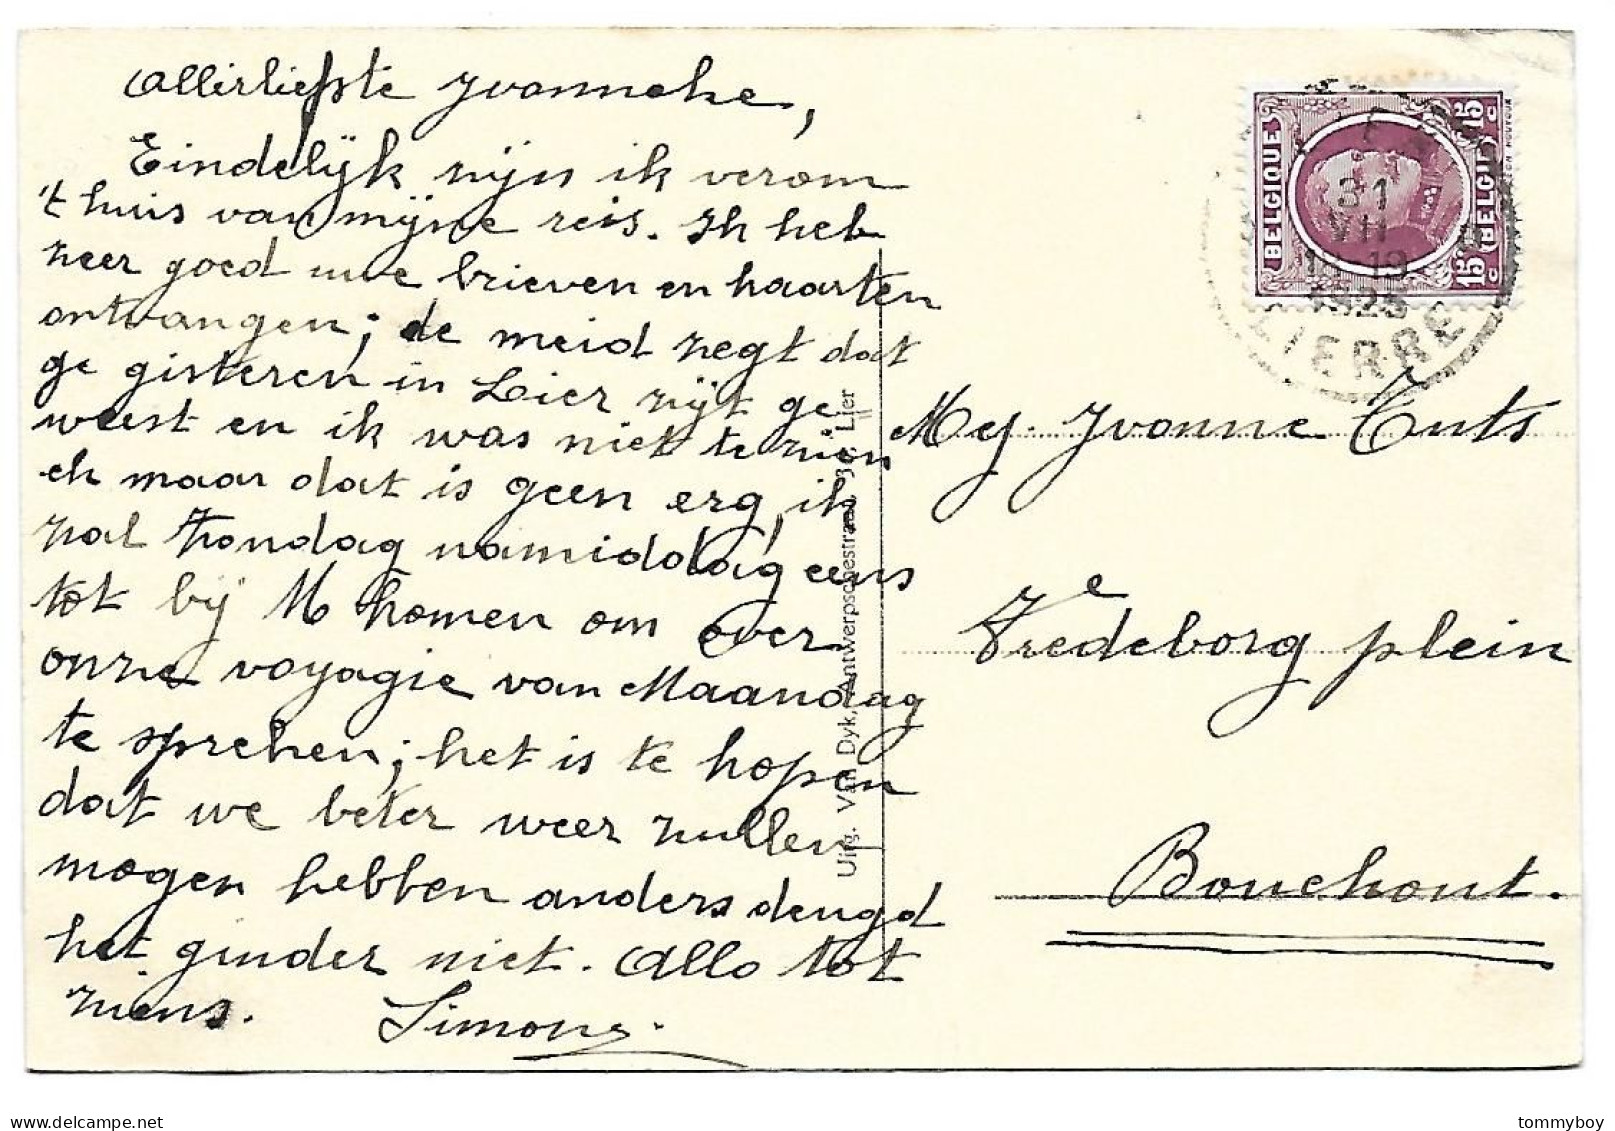 Allerliefste Yvonneke,
Eindelijk zijn ik verom
't huis van mijne reis. Ik heb
zeer goed uwe brieven en kaarten
ontvangen; de meid zegt dat
ge gisteren in Lier zijt ge
weest en ik was niet te zien
eh maar dat is geen erg, ik
zal Zondag namiddag eens
tot bij U komen om over
onze voyagie van Maandag
te spreken; het is te hopen
dat we beter weer zullen
mogen hebben anders deugd
het ginder niet. Allo tot
ziens. Simone.
Uitg. Van Dyk, Antwerpschestraat 30, Lier
BELGIQUE
BELGIË
15 c
15 c
31
VII
19
1925
LIERRE
Mej. Yvonne Cuts
Vredeborg plein
Bouchout.
tommyboy
www.delcampe.net